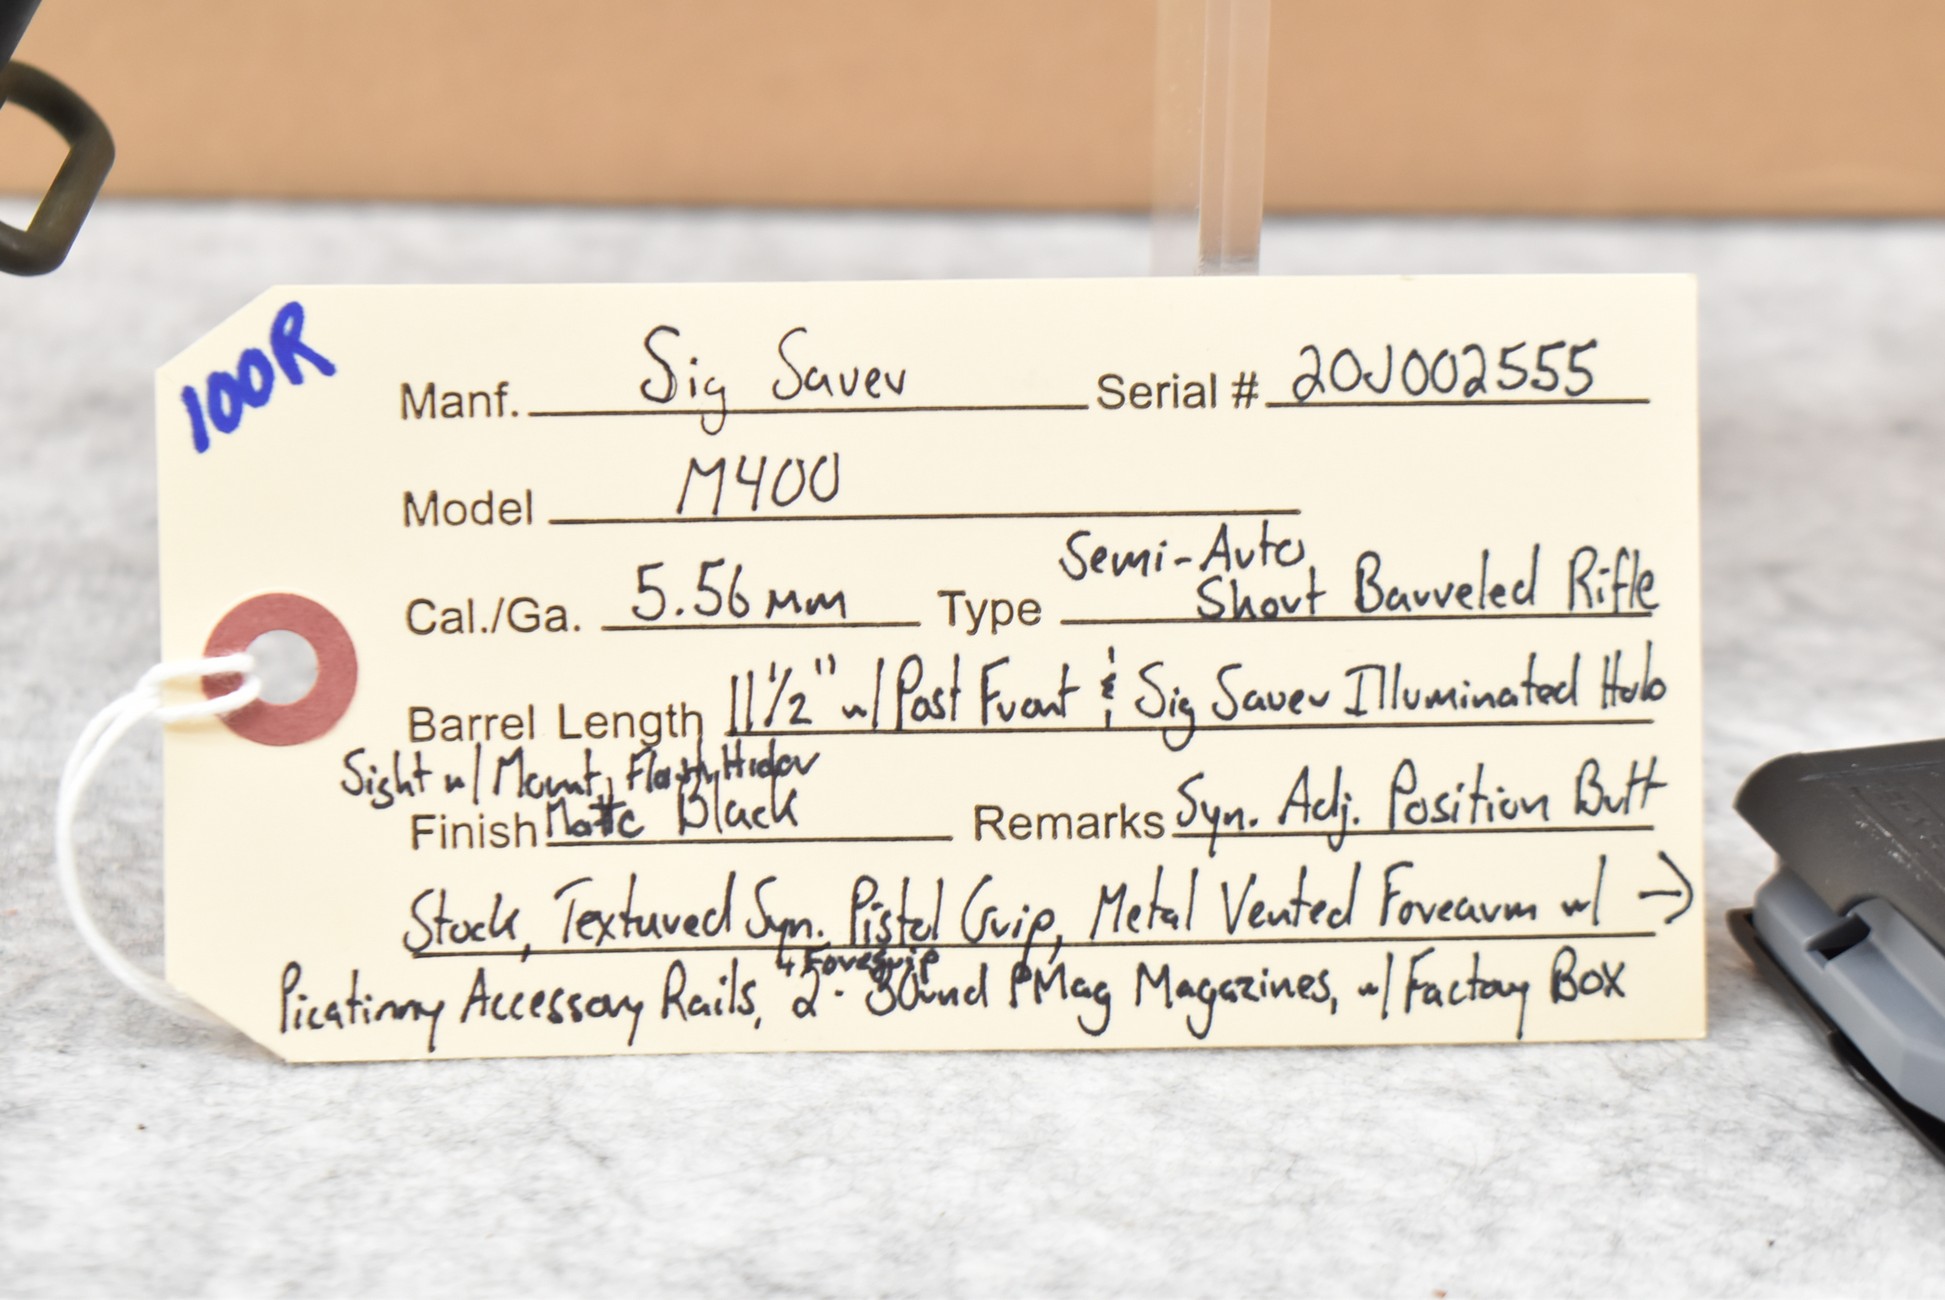 100R
Manf. Sig Sauer Serial # 20J002555
Model M400
Semi-Auto,
Cal./Ga. 5.56mm Type Short Barreled Rifle
Barrel Length 11 1/2" w/ Post Front & Sig Sauer Illuminated Holo
Sight w/ Mount, Flash Hider
Finish Matte Black Remarks Syn. Adj. Position Butt
Stock, Textured Syn. Pistol Grip, Metal Vented Forearm w/ →
& Foregrip
Picatinny Accessory Rails, 2- 30und PMag Magazines, w/ Factory Box